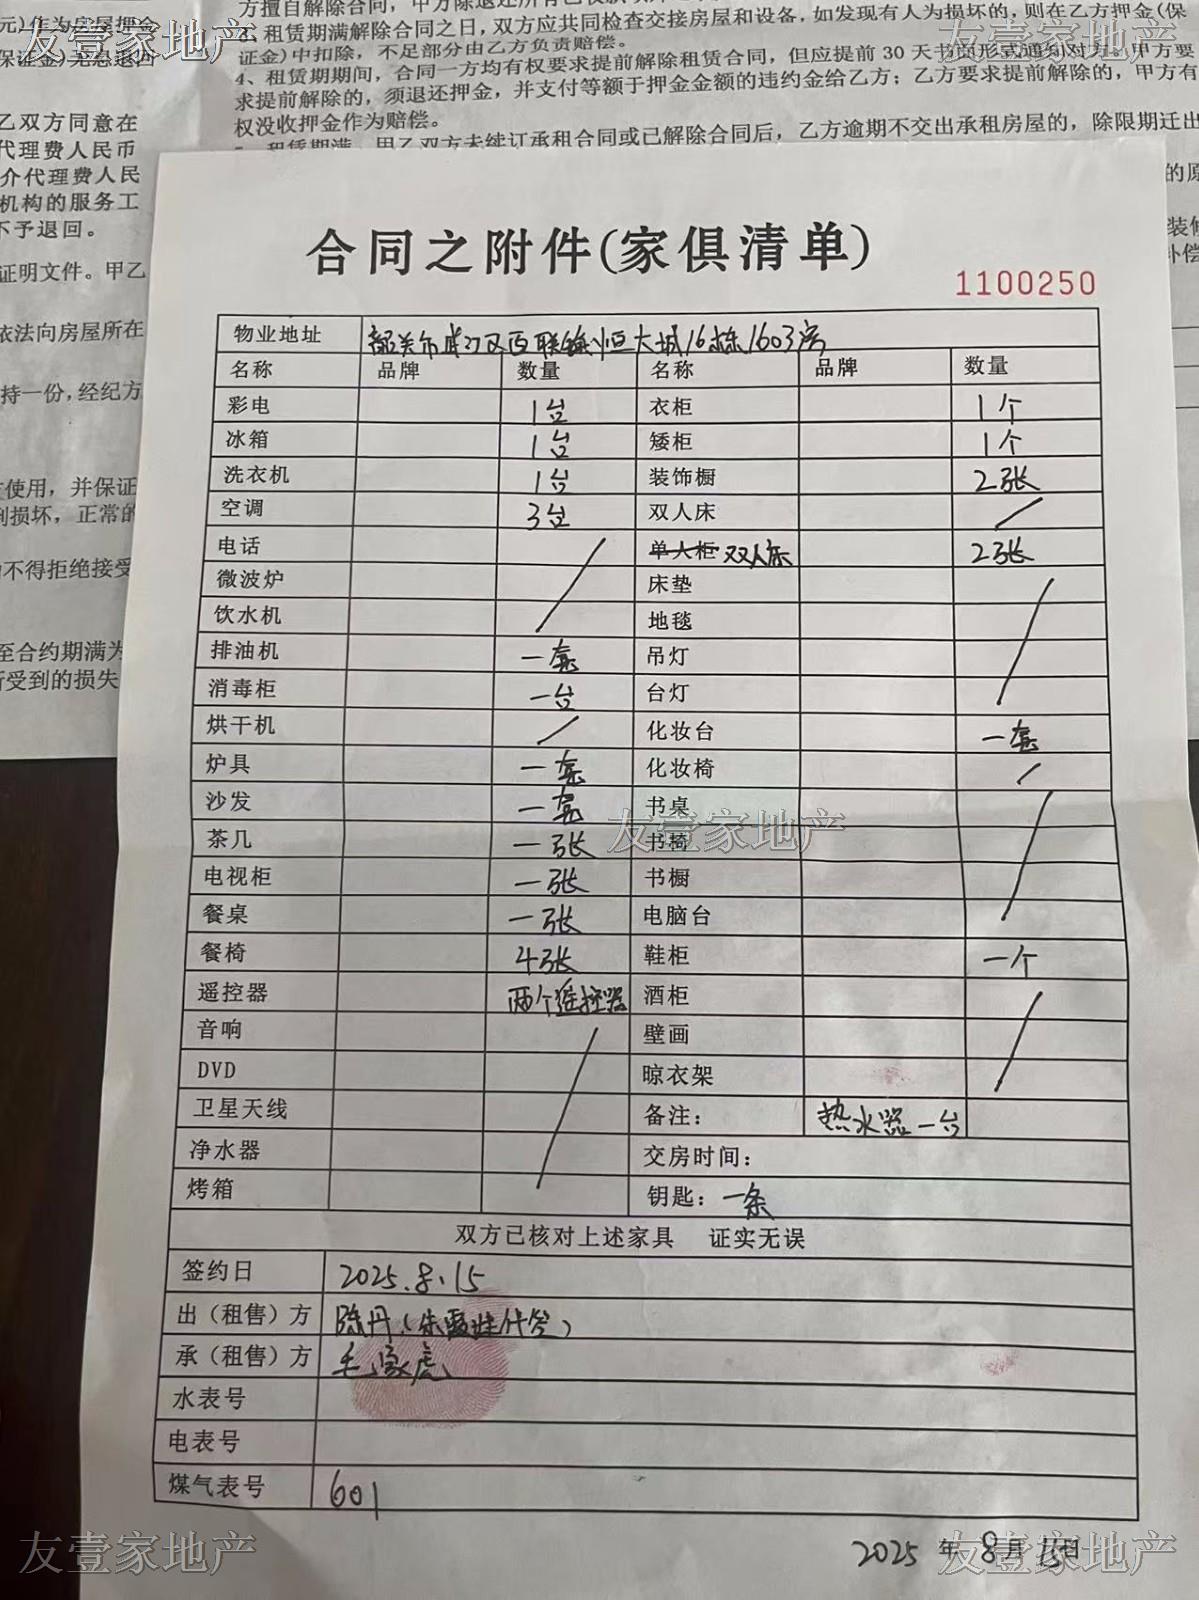 元)作为房屋押金
保证金)无息退回
乙双方同意在
代理费人民币
介代理费人民
机构的服务工
不予退回。
证明文件。甲乙
依法向房屋所在
持一份,经纪方
使用，并保证
损坏，正常的
不得拒绝接受
至合约期满为
所受到的损失
方擅自解除合同，甲方除退还所有已收款项
3、租赁期满解除合同之日，双方应共同检查交接房屋和设备，如发现有人为损坏的，则在乙方押金(保
证金)中扣除，不足部分由乙方负责赔偿。
4、租赁期期间，合同一方均有权要求提前解除租赁合同，但应提前 30 天书面形式通知对方。甲方要
求提前解除的，须退还押金，并支付等额于押金金额的违约金给乙方；乙方要求提前解除的，甲方有
权没收押金作为赔偿。
5、租赁期满，甲乙双方未续订承租合同或已解除合同后，乙方逾期不交出承租房屋的，除限期迁出
的原
装修
补偿
友壹家地产
友壹家地产
合同之附件(家俱清单)
1100250
物业地址 韶关市武江区西联镇恒大城16栋1603房
名称 品牌 数量 名称 品牌 数量
彩电 1台 衣柜 1个
冰箱 1台 矮柜 1个
洗衣机 1台 装饰橱 2张
空调 3台 双人床 /
电话 单人柜 双人床 2张
微波炉 床垫
饮水机 地毯
排油机 一套 吊灯
消毒柜 一台 台灯
烘干机 / 化妆台 一套
炉具 一套 化妆椅 /
沙发 一套 书桌
茶几 一张 书椅
友壹家地产
电视柜 一张 书橱
餐桌 一张 电脑台
餐椅 4张 鞋柜 一个
遥控器 两个遥控器 酒柜
音响 壁画
DVD 晾衣架
卫星天线 备注： 热水器一台
净水器 交房时间：
烤箱 钥匙：一条
双方已核对上述家具 证实无误
签约日 2025.8.15
出（租售）方 陈丹(朱霞代签)
承（租售）方 毛家虎
水表号
电表号
煤气表号 601
2025 年 8 月 15日
友壹家地产
友壹家地产